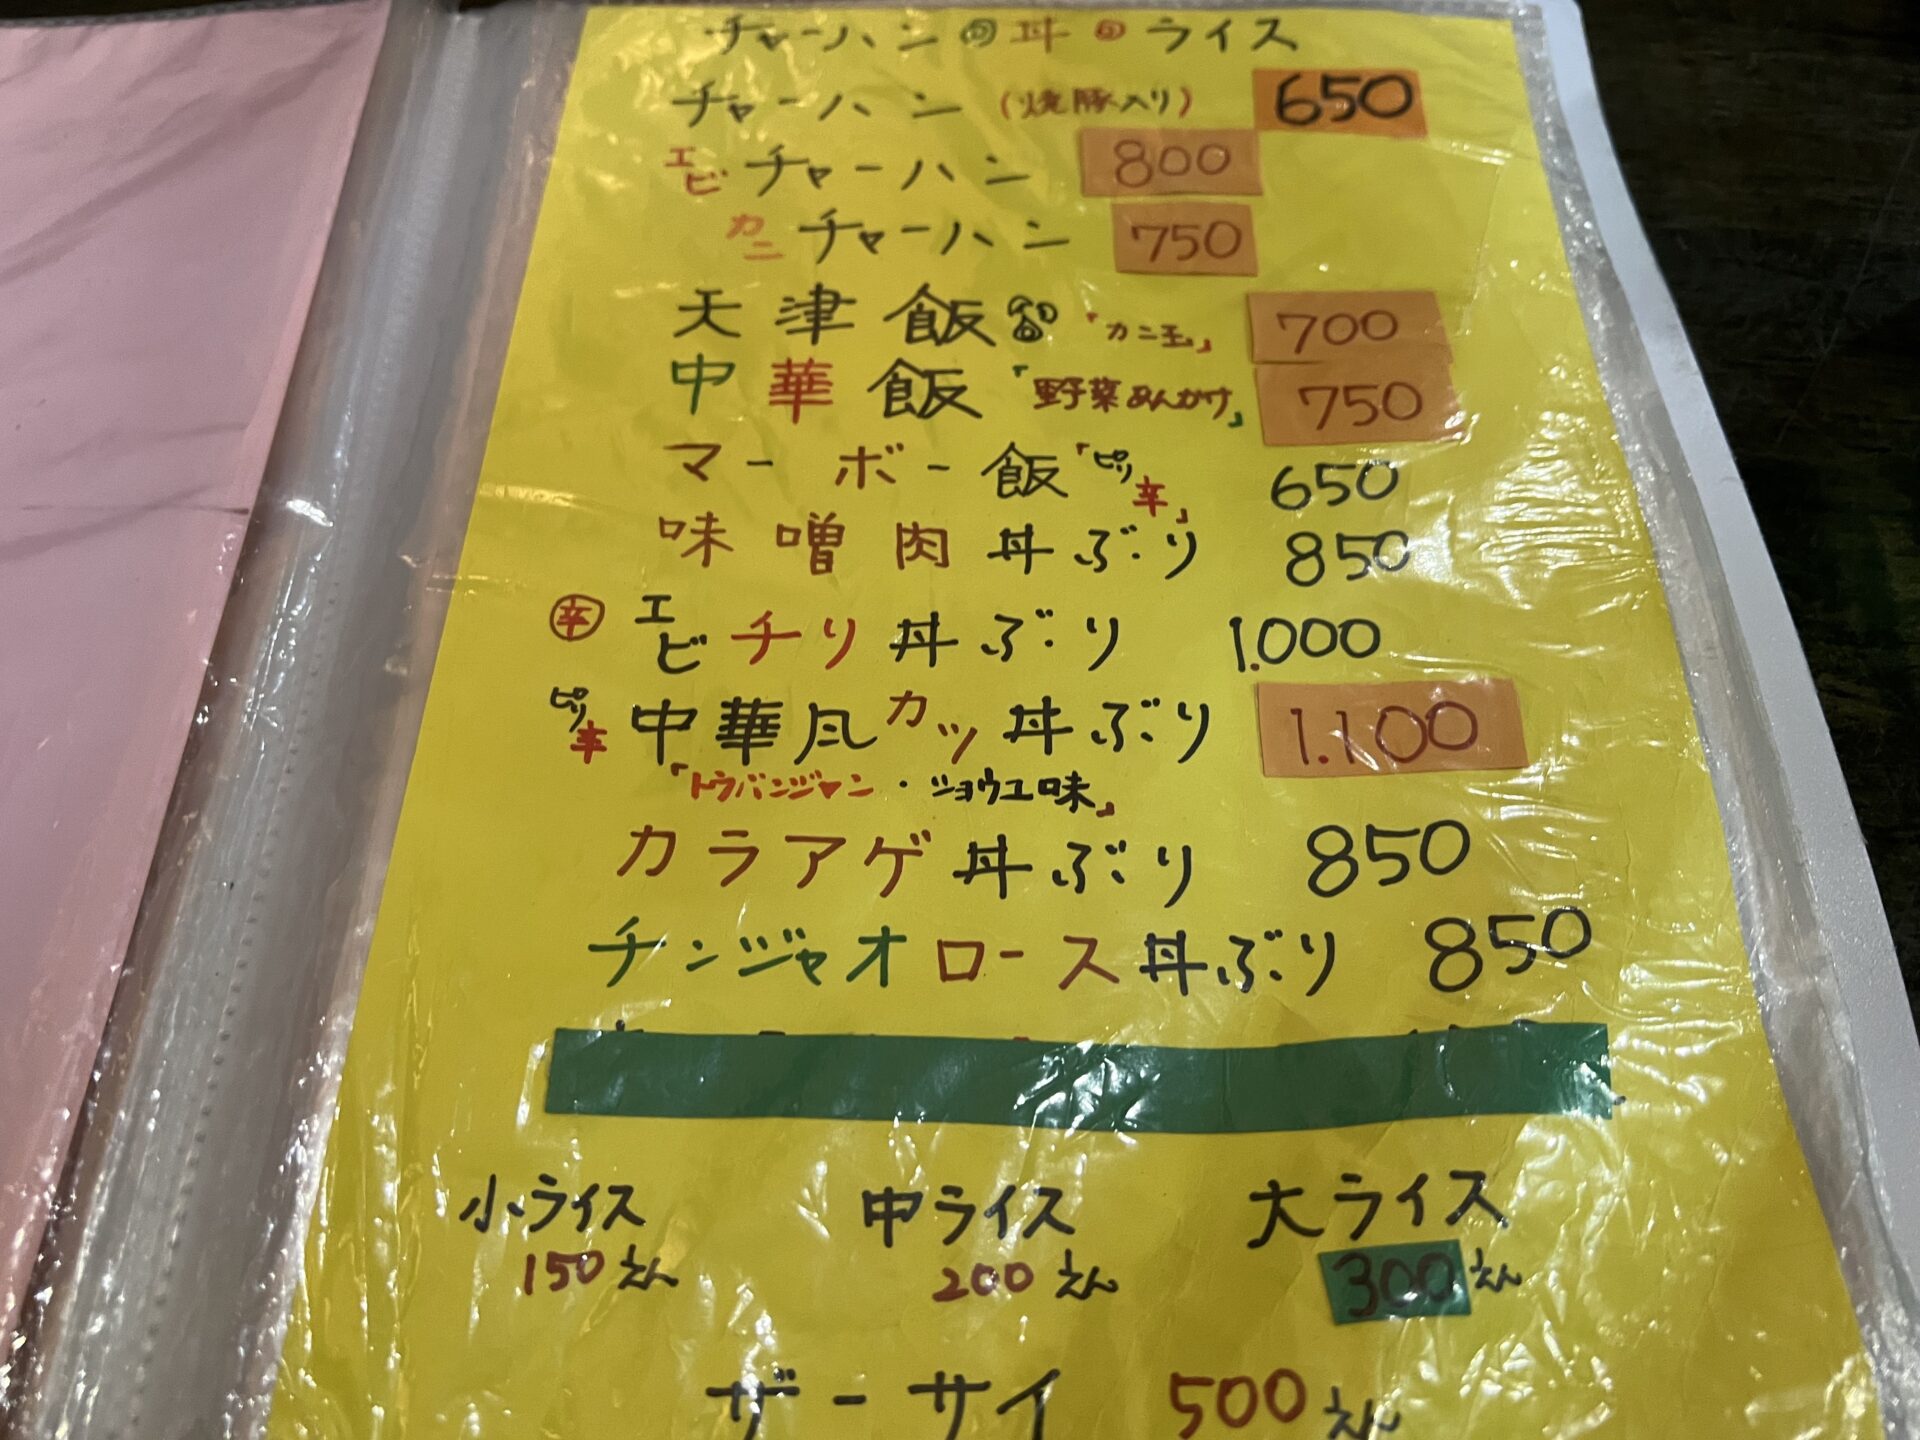 チャーハン 丼 ライス
チャーハン (焼豚入り) 650
エビチャーハン 800
カニチャーハン 750
天津飯 「カニ玉」 700
中華飯 「野菜あんかけ」 750
マーボー飯 「ピリ辛」 650
味噌肉丼ぶり 850
辛 エビチリ丼ぶり 1.000
ピリ辛 中華風カツ丼ぶり 1.100
「トウバンジャン・ジョウユ味」
カラアゲ丼ぶり 850
チンジャオロース丼ぶり 850
小ライス 中ライス 大ライス
150えん 200えん 300えん
ザーサイ 500えん